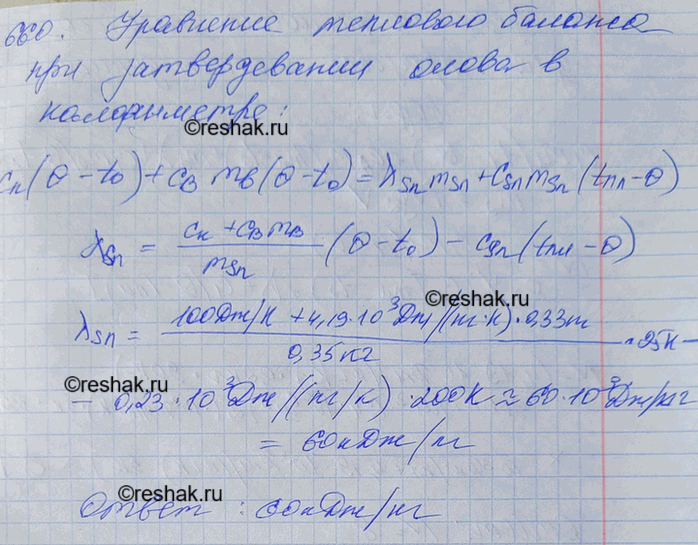 660. Уравнение теплового баланса
при затвердевании олова в
калориметре:
©reshak.ru
cк(θ - t₀) + cв mв(θ - t₀) = λSn mSn + cSn mSn (tпл - θ)
λSn = (cк + cв mв)/mSn (θ - t₀) - cSn (tпл - θ)
©reshak.ru
λSn = (100Дж/К + 4,19·10³Дж/(кг·К)·0,33кг)/0,35кг · 25К -
- 0,23·10³Дж/(кг/К)·200К ≈ 60·10³Дж/кг
©reshak.ru
= 60кДж/кг
©reshak.ru
Ответ: 60кДж/кг